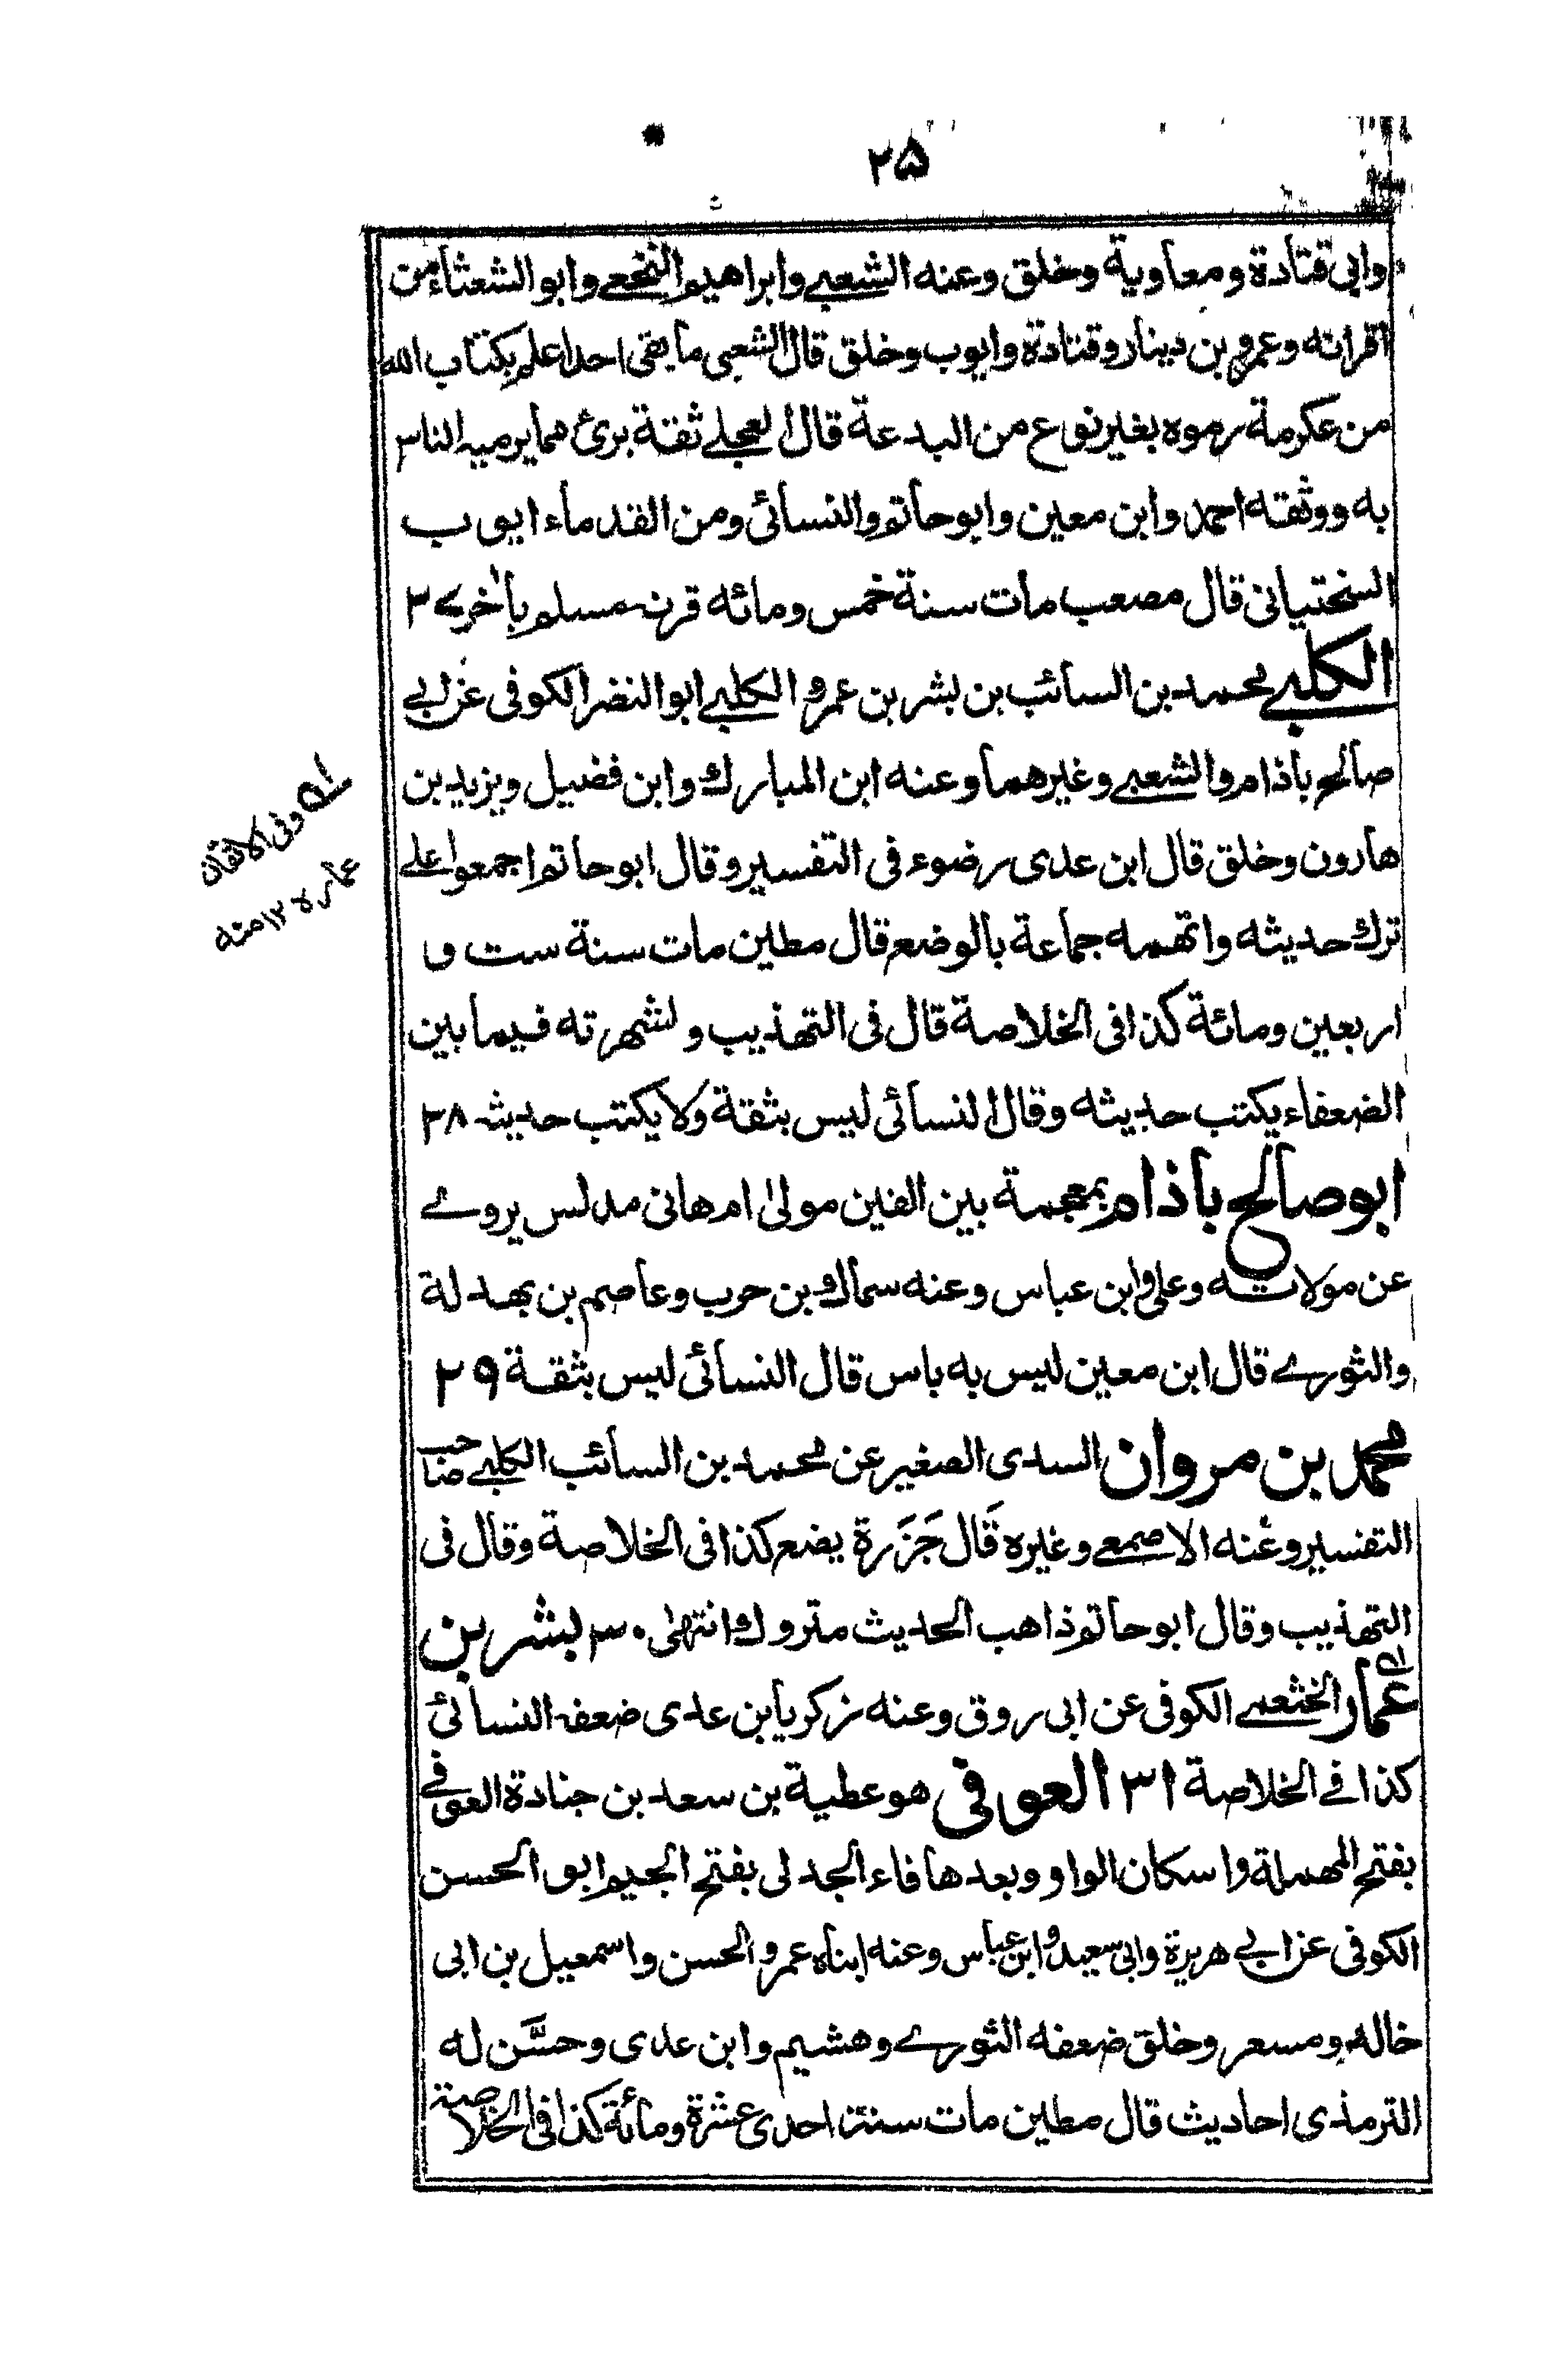 ۲۵
وابى قتادة ومعاوية وخلق وعنه الشعبے وابراهيم النخعے وابو الشعثاء من
اقرانه وعمرو بن دينار وقتادة وايوب وخلق قال الشعبى ما بقى احدا علم بكتاب الله
من عكرمة رموه بغير نوع من البدعة قال العجلے ثقة برئ مما يرميه الناس
به ووثقه احمد وابن معين وابو حاتم والنسائى ومن القدماء ايوب
السختيانى قال مصعب مات سنة خمس ومائه قرنه مسلم بأخرے ۳
الكلبے محمد بن السائب بن بشر بن عمرو الكلبے ابو النضر الكوفى عن ابے
صالح باذام والشعبے وغيرهما وعنه ابن المبارك وابن فضيل ويزيد بن
هارون وخلق قال ابن عدى رضوء فى التفسير وقال ابو حاتم اجمعوا على
ترك حديثه واتهمه جماعة بالوضع قال مطين مات سنة ست و
اربعين ومائة كذا فى الخلاصة قال فى التهذيب ولشهرته فيما بين
الضعفاء يكتب حديثه وقال النسائى ليس بثقة ولا يكتب حديثه ۲۸
ابو صالح باذام بمعجمة بين الفين مولىٰ ام هانى مدلس يروے
عن مولاته وعلى وابن عباس وعنه سماك بن حرب وعاصم بن بهدلة
والثورے قال ابن معين ليس به باس قال النسائى ليس بثقة ۲۹
محمد بن مروان السدى الصغير عن محمد بن السائب الكلبے صاحب
التفسير وعنه الاصمعے وغيره قَال جَزَرة يضع كذا فى الخلاصة وقال فى
التهذيب وقال ابو حاتم ذاهب الحديث متروك انتهىٰ ۳۰ بشر بن
عمار الخثعمے الكوفى عن ابى روق وعنه زكريا بن عدى ضعفه النسائى
كذا فے الخلاصة ۳۱ العوفى هو عطية بن سعد بن جنادة العوفے
بفتح المهملة واسكان الواو وبعدها فاء الجدلى بفتح الجيم ابو الحسن
الكوفى عن ابے هريرة وابى سعيد وابن عباس وعنه ابناه عمرو الحسن واسمعيل بن ابى
خاله ومسعر وخلق ضعفه الثورے وهشيم وابن عدى وحسَّن له
الترمذى احاديث قال مطين مات سنة احدى عشرة ومائة كذا فى الخلاصة
وفى الاتقان
عمارة ۱۲ منه